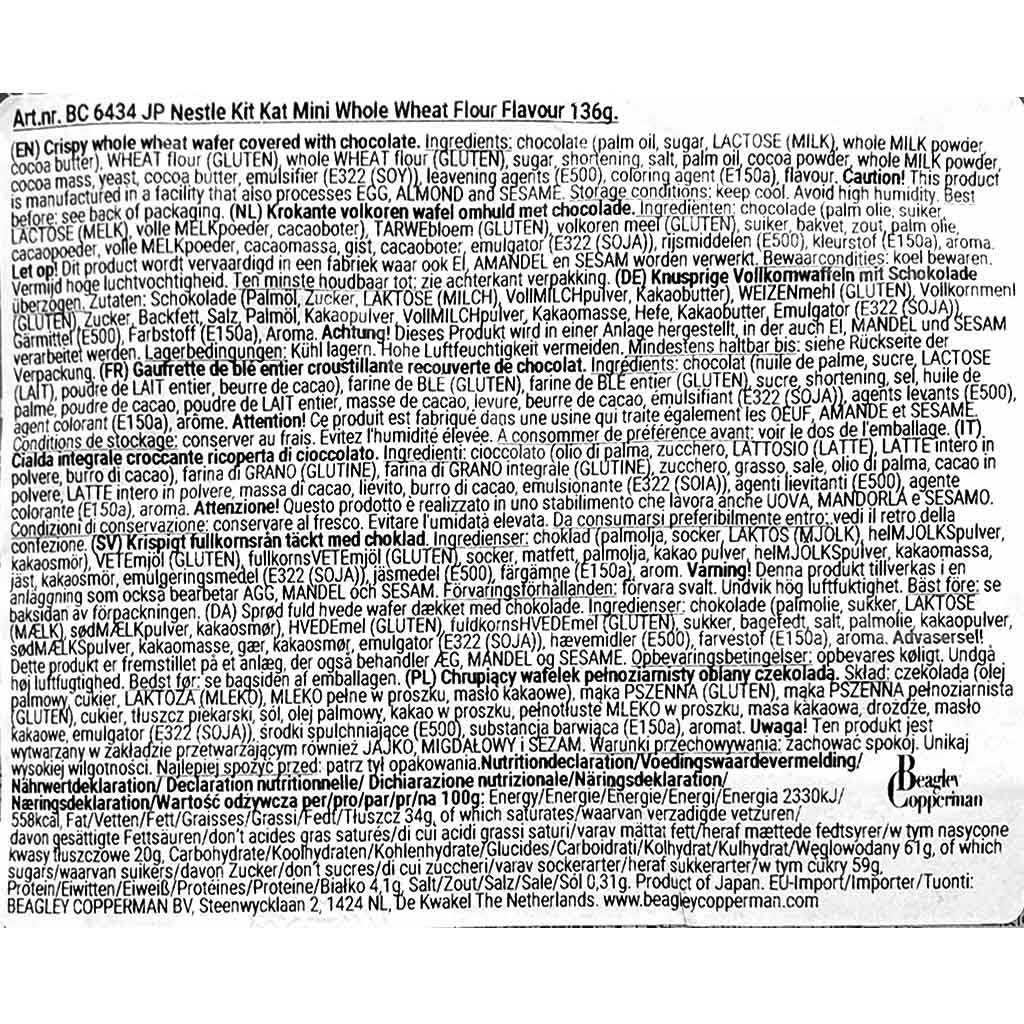 Art.nr. BC 6434 JP Nestle Kit Kat Mini Whole Wheat Flour Flavour 136g.
(EN) Crispy whole wheat wafer covered with chocolate. Ingredients: chocolate (palm oil, sugar, LACTOSE (MILK), whole MILK powder,
cocoa butter), WHEAT flour (GLUTEN), whole WHEAT flour (GLUTEN), sugar, shortening, salt, palm oil, cocoa powder, whole MILK powder,
cocoa mass, yeast, cocoa butter, emulsifier (E322 (SOY)), leavening agents (E500), coloring agent (E150a), flavour. Caution! This product
is manufactured in a facility that also processes EGG, ALMOND and SESAME. Storage conditions: keep cool. Avoid high humidity. Best
before: see back of packaging. (NL) Krokante volkoren wafel omhuld met chocolade. Ingrediënten: chocolade (palm olie, suiker,
LACTOSE (MELK), volle MELKpoeder, cacaoboter), TARWEbloem (GLUTEN), volkoren meel (GLUTEN), suiker, bakvet, zout, palm olie,
cacaopoeder, volle MELKpoeder, cacaomassa, gist, cacaoboter, emulgator (E322 (SOJA)), rijsmiddelen (E500), kleurstof (E150a), aroma.
Let op! Dit product wordt vervaardigd in een fabriek waar ook EI, AMANDEL en SESAM worden verwerkt. Bewaarcondities: koel bewaren.
Vermijd hoge luchtvochtigheid. Ten minste houdbaar tot: zie achterkant verpakking. (DE) Knusprige Vollkornwaffeln mit Schokolade
überzogen. Zutaten: Schokolade (Palmöl, Zucker, LAKTOSE (MILCH), VollMILCHpulver, Kakaobutter), WEIZENmehl (GLUTEN), Vollkornmehl
(GLUTEN), Zucker, Backfett, Salz, Palmöl, Kakaopulver, VollMILCHpulver, Kakaomasse, Hefe, Kakaobutter, Emulgator (E322 (SOJA)),
Gärmittel (E500), Farbstoff (E150a), Aroma. Achtung! Dieses Produkt wird in einer Anlage hergestellt, in der auch EI, MANDEL und SESAM
verarbeitet werden. Lagerbedingungen: Kühl lagern. Hohe Luftfeuchtigkeit vermeiden. Mindestens haltbar bis: siehe Rückseite der
Verpackung. (FR) Gaufrette de blé entier croustillante recouverte de chocolat. Ingrédients: chocolat (huile de palme, sucre, LACTOSE
(LAIT), poudre de LAIT entier, beurre de cacao), farine de BLÉ (GLUTEN), farine de BLÉ entier (GLUTEN), sucre, shortening, sel, huile de
palme, poudre de cacao, poudre de LAIT entier, masse de cacao, levure, beurre de cacao, émulsifiant (E322 (SOJA)), agents levants (E500),
agent colorant (E150a), arôme. Attention! Ce produit est fabriqué dans une usine qui traite également les OEUF, AMANDE et SESAME.
Conditions de stockage: conserver au frais. Evitez l'humidité élevée. A consommer de préférence avant: voir le dos de l'emballage. (IT)
Cialda integrale croccante ricoperta di cioccolato. Ingredienti: cioccolato (olio di palma, zucchero, LATTOSIO (LATTE), LATTE intero in
polvere, burro di cacao), farina di GRANO (GLUTINE), farina di GRANO integrale (GLUTINE), zucchero, grasso, sale, olio di palma, cacao in
polvere, LATTE intero in polvere, massa di cacao, lievito, burro di cacao, emulsionante (E322 (SOIA)), agenti lievitanti (E500), agente
colorante (E150a), aroma. Attenzione! Questo prodotto è realizzato in uno stabilimento che lavora anche UOVA, MANDORLA e SESAMO.
Condizioni di conservazione: conservare al fresco. Evitare l'umidità elevata. Da consumarsi preferibilmente entro: vedi il retro della
confezione. (SV) Krispigt fullkornsrån täckt med choklad. Ingredienser: choklad (palmolja, socker, LAKTOS (MJÖLK), helMJÖLKSpulver,
kakaosmör), VETEmjöl (GLUTEN), fullkornsVETEmjöl (GLUTEN), socker, matfett, palmolja, kakao pulver, helMJÖLKSpulver, kakaomassa,
jäst, kakaosmör, emulgeringsmedel (E322 (SOJA)), jäsmedel (E500), färgämne (E150a), arom. Varning! Denna produkt tillverkas i en
anläggning som också bearbetar ÄGG, MANDEL och SESAM. Förvaringsförhållanden: förvara svalt. Undvik hög luftfuktighet. Bäst före: se
baksidan av förpackningen. (DA) Sprød fuld hvede wafer dækket med chokolade. Ingredienser: chokolade (palmolie, sukker, LAKTOSE
(MÆLK), sødMÆLKpulver, kakaosmør), HVEDEmel (GLUTEN), fuldkornsHVEDEmel (GLUTEN), sukker, bagefedt, salt, palmolie, kakaopulver,
sødMÆLKSpulver, kakaomasse, gær, kakaosmør, emulgator (E322 (SOJA)), hævemidler (E500), farvestof (E150a), aroma. Advarsersel!
Dette produkt er fremstillet på et anlæg, der også behandler ÆG, MANDEL og SESAME. Opbevaringsbetingelser: opbevares køligt. Undgå
høj luftfugtighed. Bedst før: se bagsiden af emballagen. (PL) Chrupiący wafelek pełnoziarnisty oblany czekoladą. Skład: czekolada (olej
palmowy, cukier, LAKTOZA (MLEKO), MLEKO pełne w proszku, masło kakaowe), mąka PSZENNA (GLUTEN), mąka PSZENNA pełnoziarnista
(GLUTEN), cukier, tłuszcz piekarski, sól, olej palmowy, kakao w proszku, pełnotłuste MLEKO w proszku, masa kakaowa, drożdże, masło
kakaowe, emulgator (E322 (SOJA)), środki spulchniające (E500), substancja barwiąca (E150a), aromat. Uwaga! Ten produkt jest
wytwarzany w zakładzie przetwarzającym również JAJKO, MIGDAŁOWY i SEZAM. Warunki przechowywania: zachować spokój. Unikaj
wysokiej wilgotności. Najlepiej spożyć przed: patrz tył opakowania.Nutritiondeclaration/Voedingswaardevermelding/
Nährwertdeklaration/ Declaration nutritionnelle/ Dichiarazione nutrizionale/Näringsdeklaration/
Næringsdeklaration/Wartość odżywcza per/pro/par/pr/na 100g: Energy/Energie/Energie/Energi/Energia 2330kJ/
558kcal, Fat/Vetten/Fett/Graisses/Grassi/Fedt/Tłuszcz 34g, of which saturates/waarvan verzadigde vetzuren/
davon gesättigte Fettsäuren/don't acides gras saturés/di cui acidi grassi saturi/varav mättat fett/heraf mættede fedtsyrer/w tym nasycone
kwasy tłuszczowe 20g, Carbohydrate/Koolhydraten/Kohlenhydrate/Glucides/Carboidrati/Kolhydrat/Kulhydrat/Węglowodany 61g, of which
sugars/waarvan suikers/davon Zucker/don't sucres/di cui zuccheri/varav sockerarter/heraf sukkerarter/w tym cukry 59g,
Protein/Eiwitten/Eiweiß/Protéines/Proteine/Białko 4,1g, Salt/Zout/Salz/Sale/Sól 0,31g. Product of Japan. EU-Import/Importer/Tuonti:
BEAGLEY COPPERMAN BV, Steenwycklaan 2, 1424 NL, De Kwakel The Netherlands. www.beagleycopperman.com
Beagley
Copperman